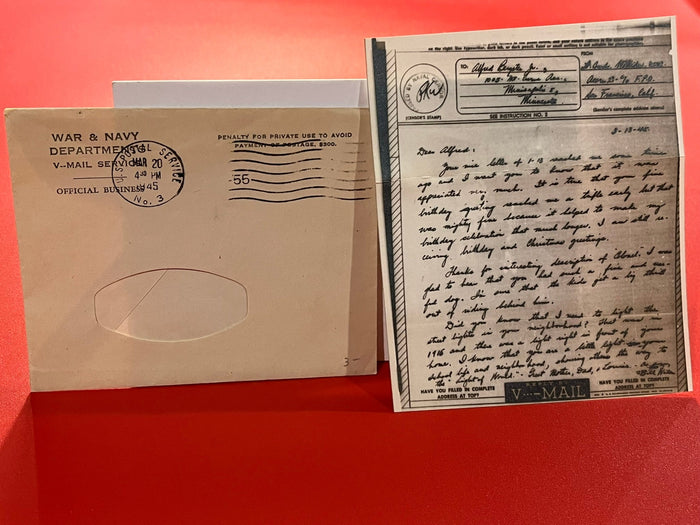 WAR & NAVY
DEPARTMENTS
V--MAIL SERVICE
OFFICIAL BUSINESS
U.S. POSTAL SERVICE
MAR 20
4 30 PM
1945
No. 3
PENALTY FOR PRIVATE USE TO AVOID
PAYMENT OF POSTAGE, $300.
55
3.-
on the right. Use typewriter, dark ink, or dark pencil. Faint or small writing is not suitable for photographing.
TO:
FROM
Alfred Jr.,
1025 Ave.
Minneapolis
Minnesota
F.P.O.
San Francisco, Calif.
(CENSOR'S STAMP)
SEE INSTRUCTION NO. 2
(Sender's complete address above)
2-13-45.
Dear Alfred:
Your nice letter of 1-13 reached me some time
ago and I want you to know that it was
appreciated very much. It is true that your fine
birthday greeting reached me a trifle early but that
was mighty fine because it helped to make my
birthday celebration that much longer. I am still re-
ceiving birthday and Christmas greetings.
Thanks for interesting description of Colonel. I was
glad to hear that you had such a fine and use-
ful dog. I'm sure that the kids get a big thrill
out of riding behind him.
Did you know that I used to light the
street lights in your neighborhood? That was in
1916 and there was a light right in front of your
house. I know that you are a little light in your
school life and neighborhood, showing others the way to
the "Light of World." - Greet Mother, Dad, & Lonnie. -
HAVE YOU FILLED IN COMPLETE
ADDRESS AT TOP?
REPLY BY
V---MAIL
HAVE YOU FILLED IN COMPLETE
ADDRESS AT TOP?